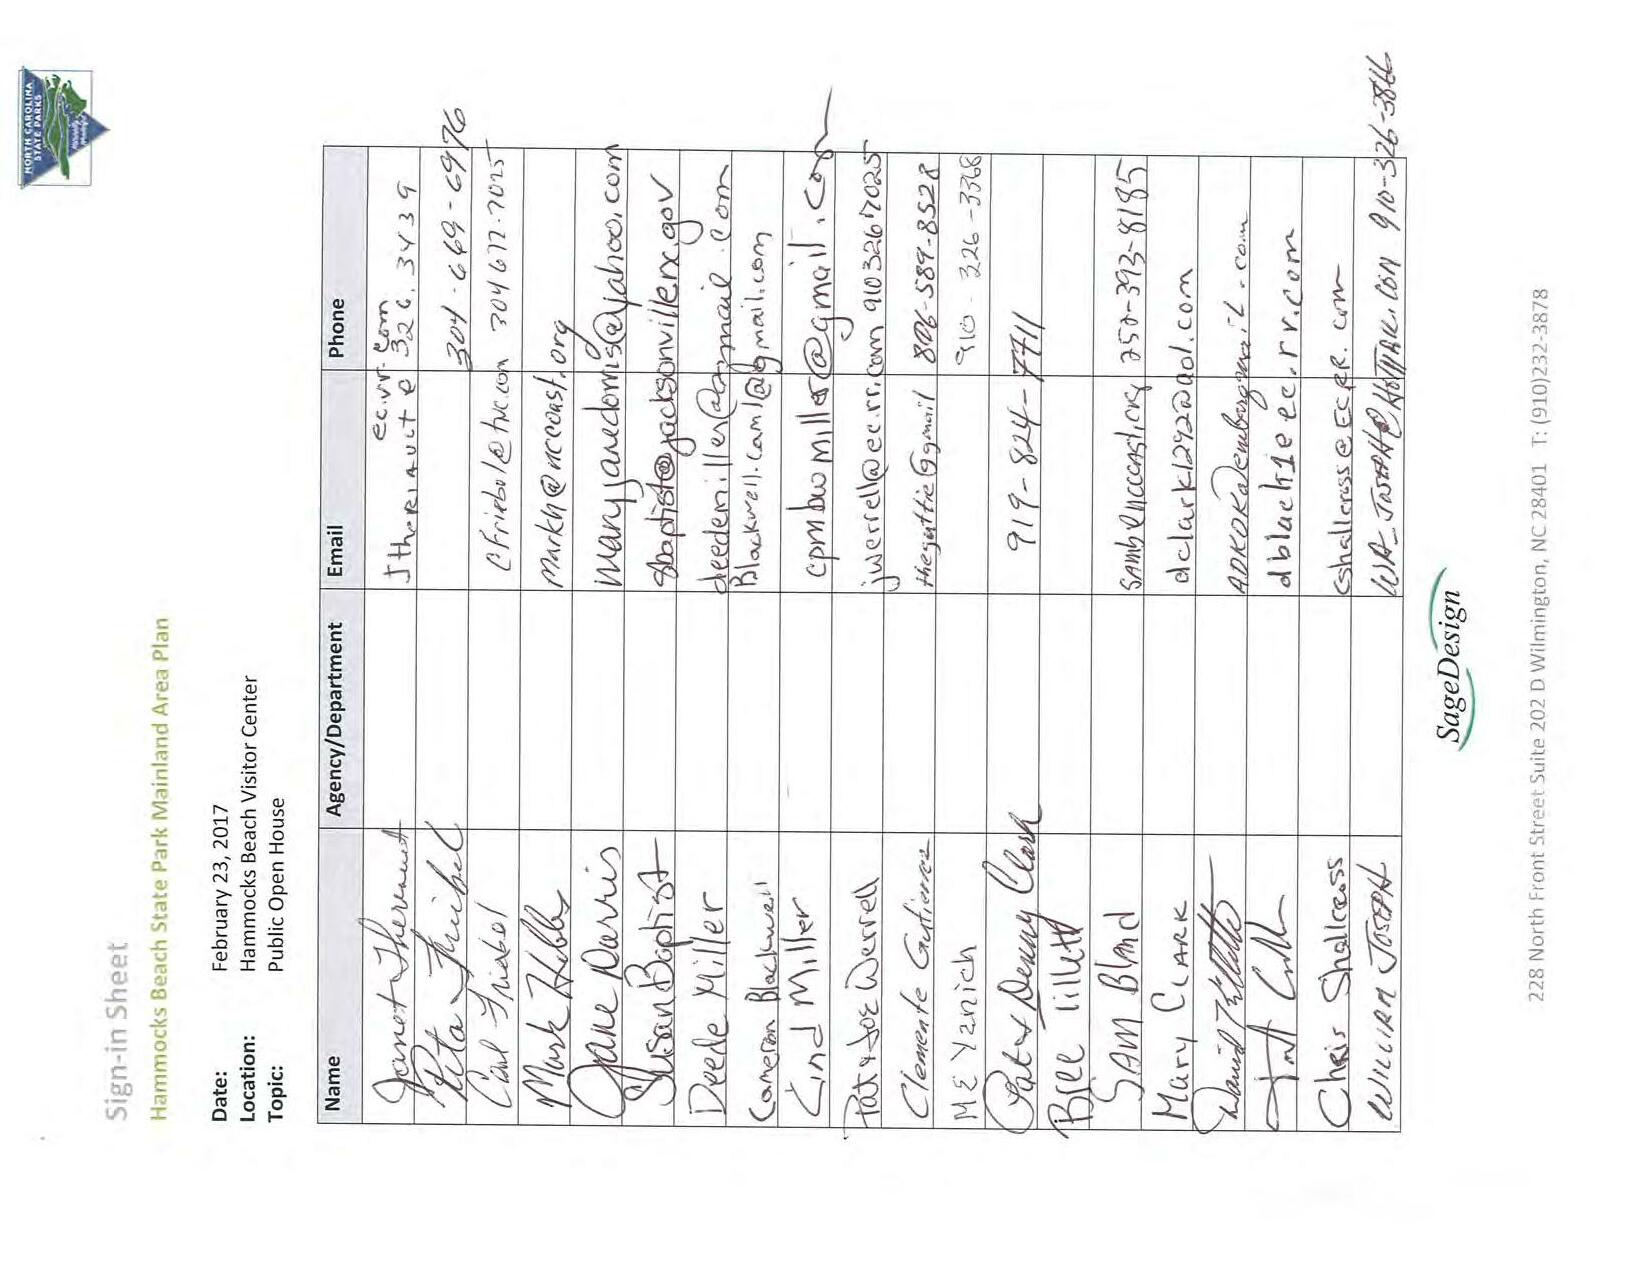 NORTH CAROLINA
STATE PARKS
Sign-in Sheet
Hammocks Beach State Park Mainland Area Plan
Date: February 23, 2017
Location: Hammocks Beach Visitor Center
Topic: Public Open House
Name Agency/Department Email Phone
Janet Theriault Jtheriault@ec.rr.com 326.3439
Rita Friebel 304-669-6976
Carl Friebel cfriebel@hvc.com 304 677-7025
Mark Hobbs markh@nccoast.org
Jane Dorris maryjanedorris@yahoo.com
Susan Baptist sbaptist@jacksonvillenc.gov
Deede Miller deedemiller@gmail.com
Cameron Blackwell Blackwell.cam1@gmail.com
Lind Miller cpmbwmiller@gmail.com
Pat & Joe Werrell jwerrell@ec.rr.com 910 326 7025
Clemente Gutierrez theguttie@gmail 806-589-8528
ME Yarnich 910-326-3368
Pat & Denny Clark 919-824-7711
Bill Tillett
SAM Bland samb@nccoast.org 252-393-8185
Mary CLARK dclark1292@aol.com
David
dblack1@ec.rr.com
Chris Shallcross cshallcross@ec.rr.com
WILLIAM JOSEPH WA_JOSEPH@HOTMAIL.COM 910-326-3866
SageDesign
228 North Front Street Suite 202 D Wilmington, NC 28401 T: (910)232-3878